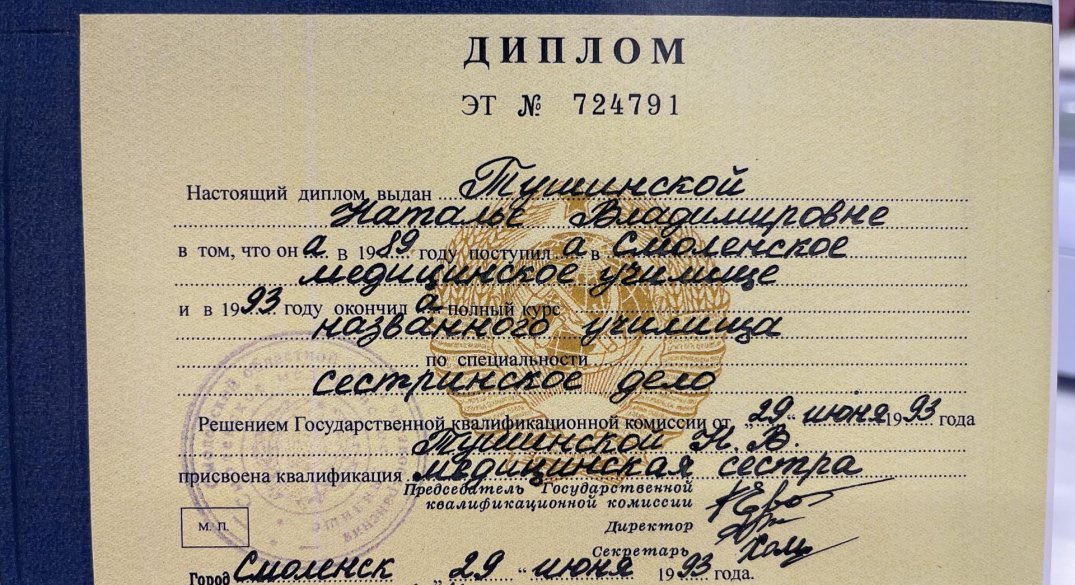 ДИПЛОМ
ЭТ № 724791
Настоящий диплом выдан Тушинской
Наталье Владимировне
в том, что он а в 1989 году поступил а в Смоленское
медицинское училище
и в 1993 году окончил а полный курс
названного училища
по специальности
сестринское дело
Решением Государственной квалификационной комиссии от „29“ июня 1993 года
Тушинской Н. В.
присвоена квалификация медицинская сестра
Председатель Государственной
квалификационной комиссии
Директор
М. П.
Секретарь
Город Смоленск „29“ июня 1993 года.